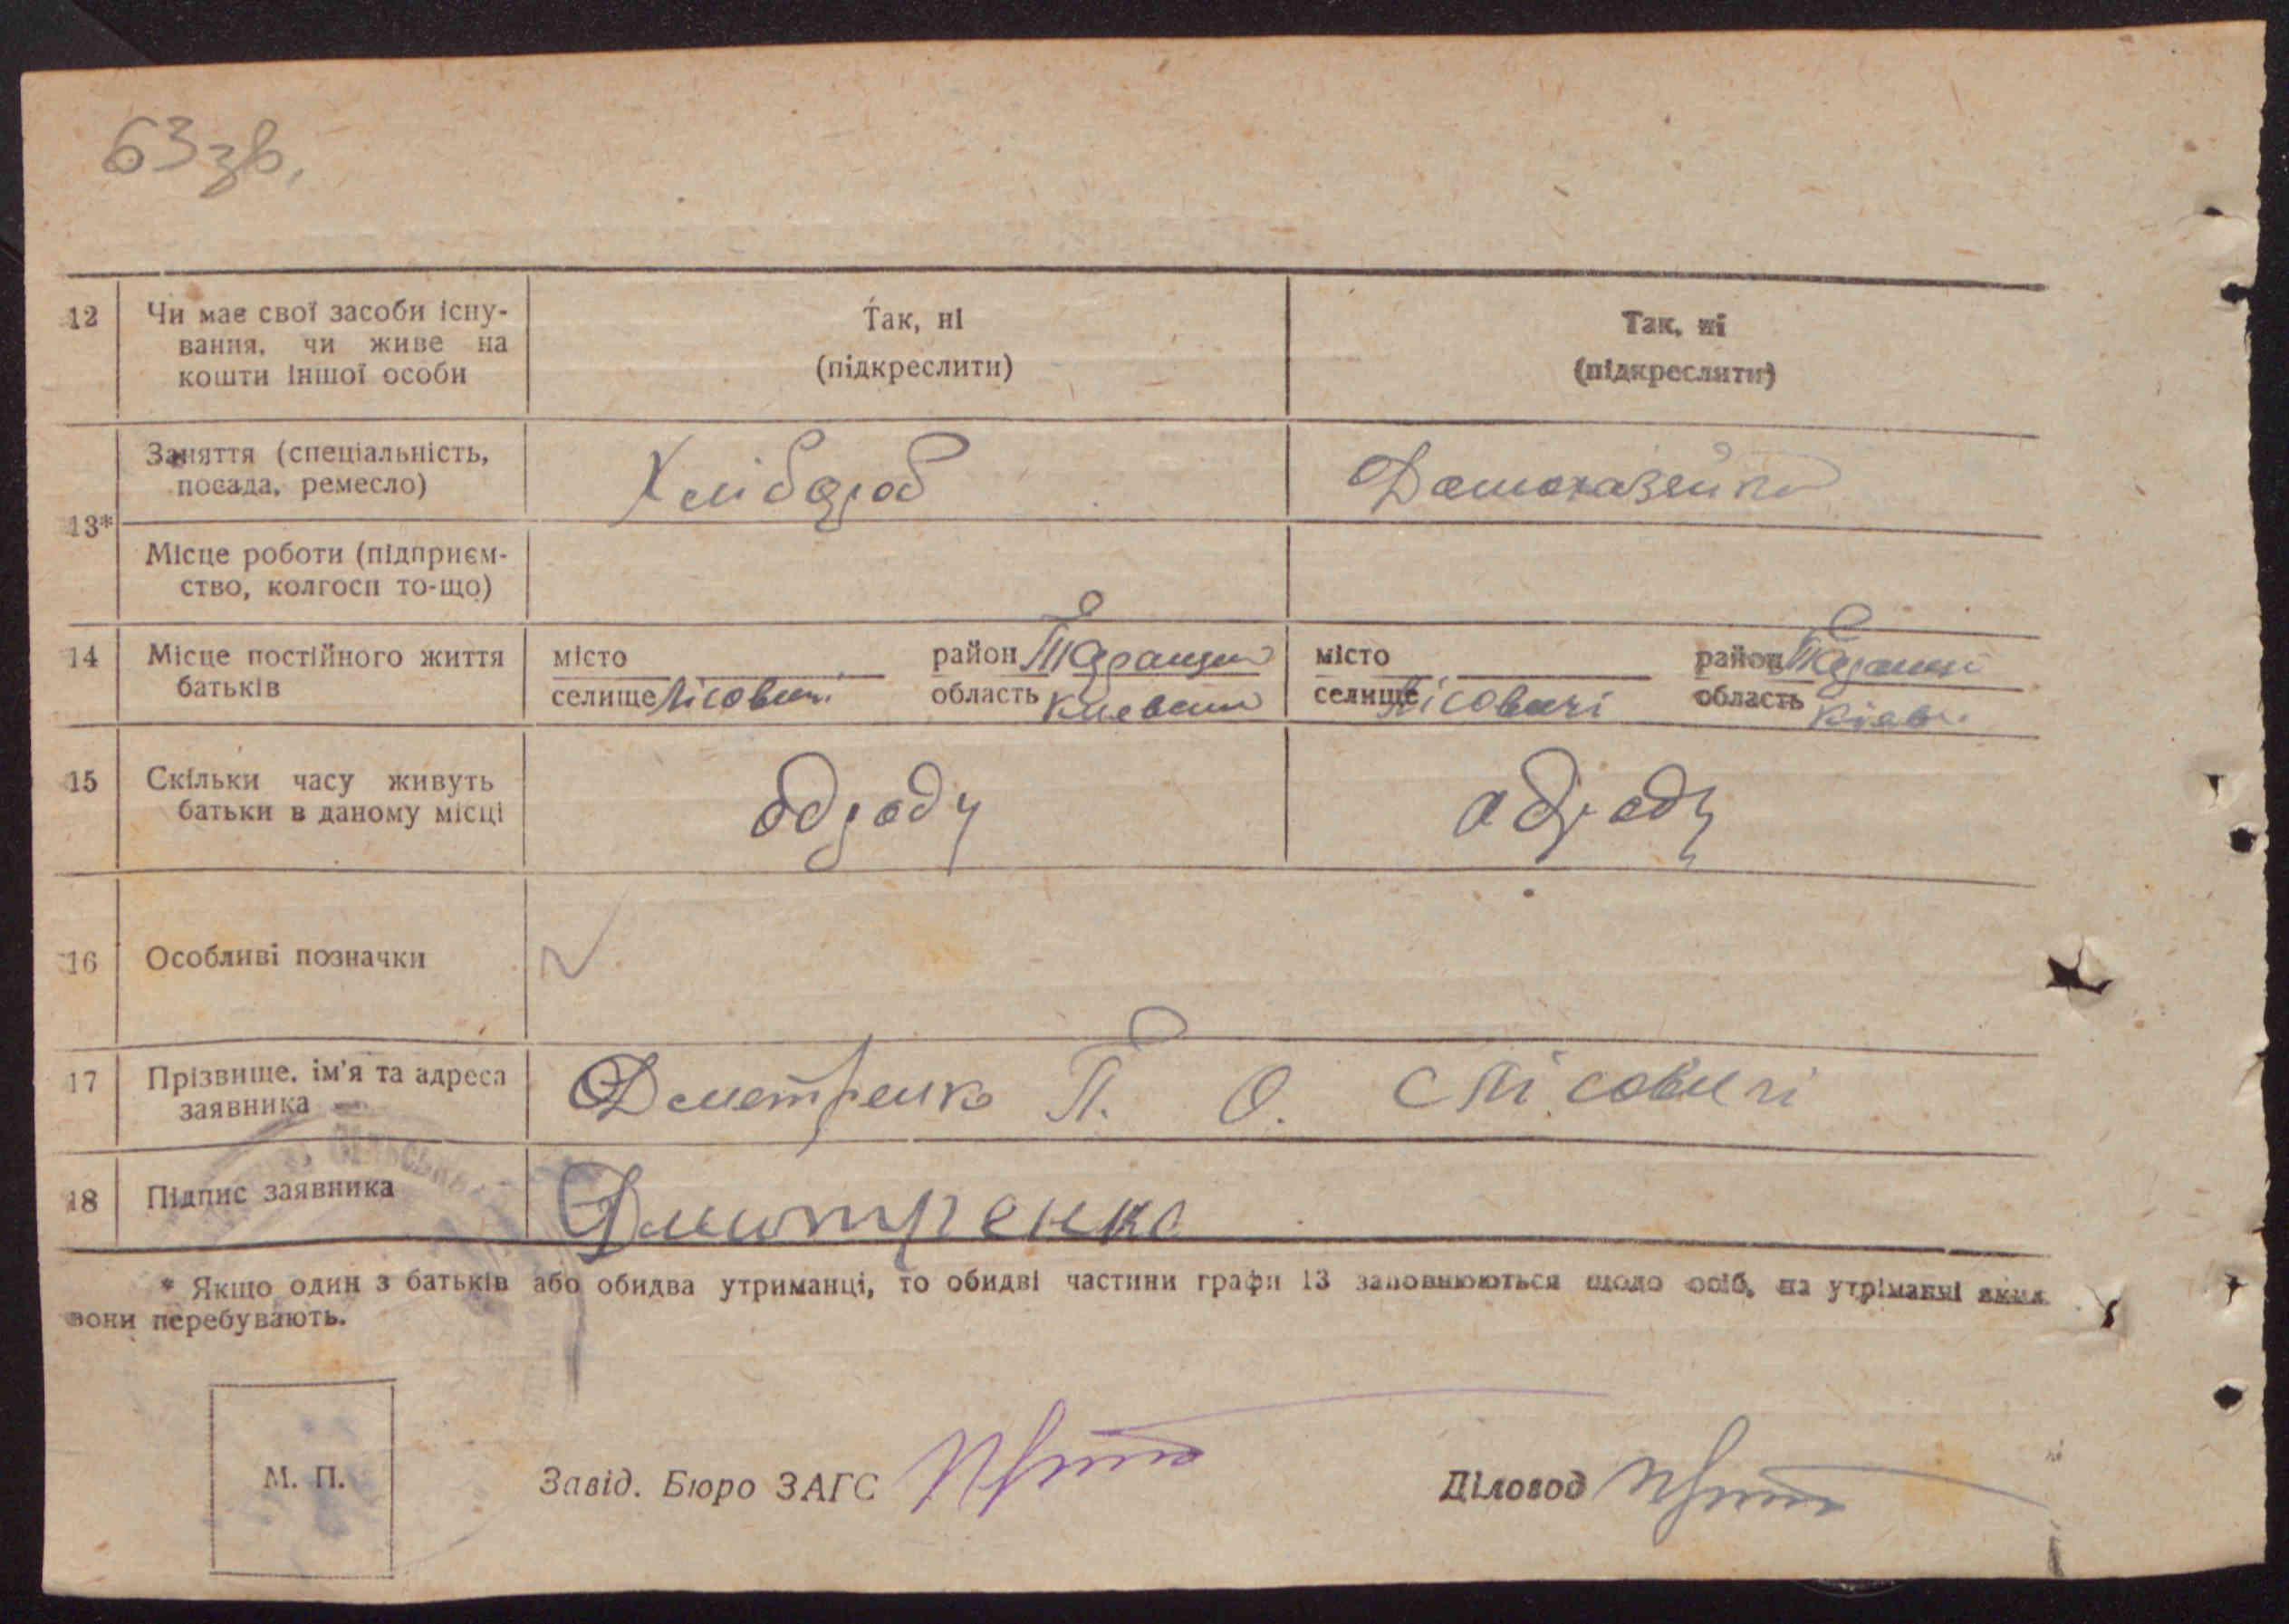 63 зв.
12 Чи має свої засоби існу- Так, ні Так, ні
вання, чи живе на (підкреслити) (підкреслити)
кошти іншої особи
13* Заняття (спеціальність, Хлібороб Домохазейка
посада, ремесло)
Місце роботи (підприєм-
ство, колгосп то-що)
14 Місце постійного життя місто район місто район
батьків селище Лісовичі область селище Лісовичі область
15 Скільки часу живуть одроду одроду
батьки в даному місці
16 Особливі позначки
17 Прізвище, ім'я та адреса Дметренко П. О. с Лісовичі
заявника
18 Підпис заявника Дмитренко
* Якщо один з батьків або обидва утриманці, то обидві частини графи 13 заповнюються щодо осіб, на утріманні яких
вони перебувають.
М. П. Завід. Бюро ЗАГС Діловод